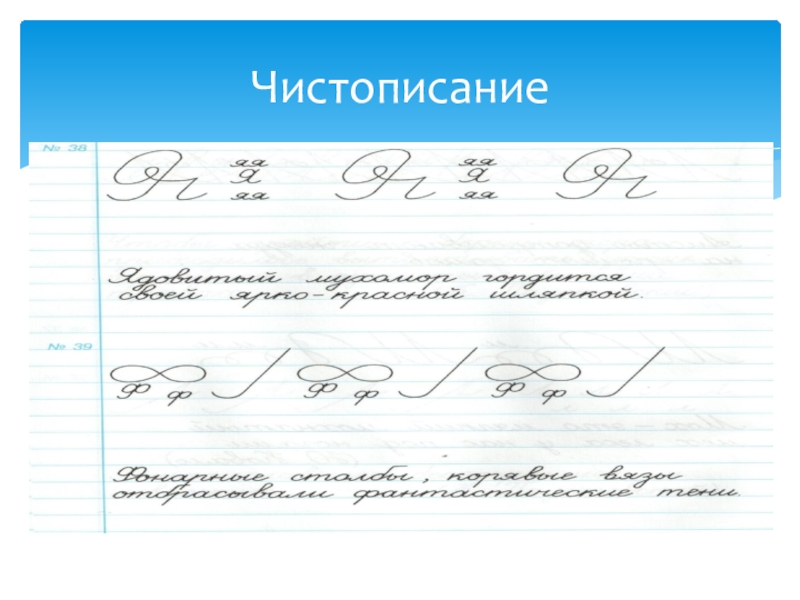 Чистописание
№ 38
яя яя
Я Я
яя яя
Ядовитый мухомор гордится
своей ярко-красной шляпкой.
№ 39
Ф ф Ф ф Ф ф
Фонарные столбы, корявые вязы
отбрасывали фантастические тени.